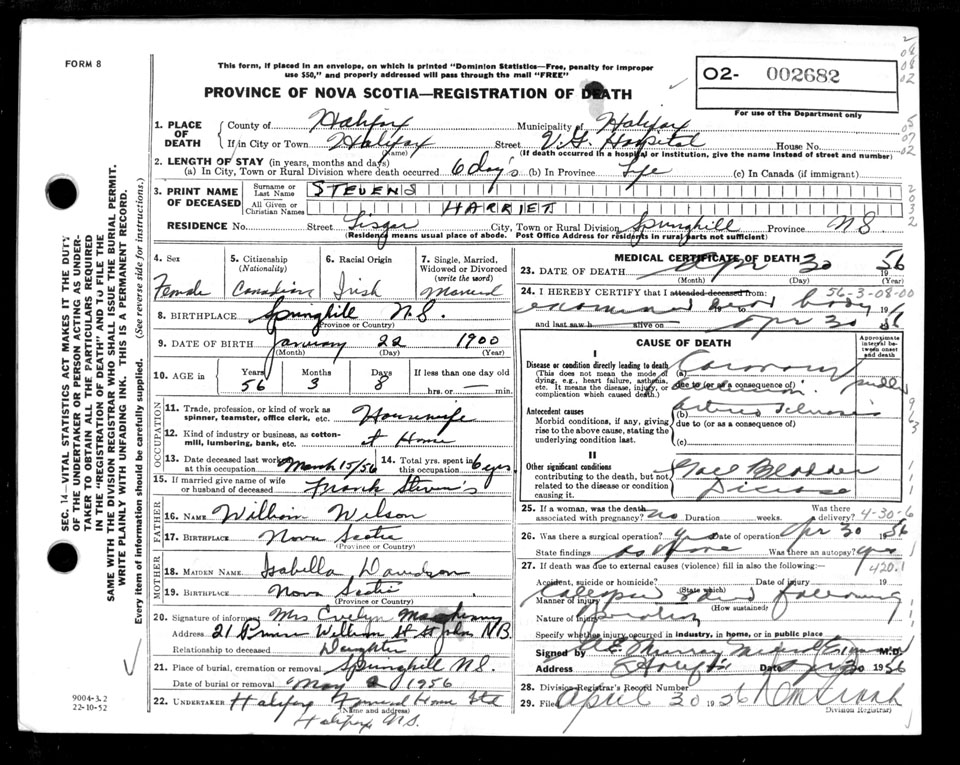 FORM 8
This form, if placed in an envelope, on which is printed "Dominion Statistics—Free, penalty for improper
use $50," and properly addressed will pass through the mail "FREE"
02- 002682
For use of the Department only
PROVINCE OF NOVA SCOTIA—REGISTRATION OF DEATH
SEC. 14—VITAL STATISTICS ACT MAKES IT THE DUTY
OF THE UNDERTAKER OR PERSON ACTING AS UNDER-
TAKER TO OBTAIN ALL THE PARTICULARS REQUIRED
IN THE "REGISTRATION OF DEATH" AND TO FILE THE
SAME WITH THE DIVISION REGISTRAR WHO SHALL ISSUE THE BURIAL PERMIT.
WRITE PLAINLY WITH UNFADING INK. THIS IS A PERMANENT RECORD.
Every item of information should be carefully supplied. (See reverse side for instructions.)
1. PLACE OF DEATH
County of Halifax Municipality of Halifax
If in City or Town Halifax Street V.G. Hospital House No.
(Name) (If death occurred in a hospital or institution, give the name instead of street and number)
2. LENGTH OF STAY (in years, months and days)
(a) In City, Town or Rural Division where death occurred 6 day's (b) In Province Life (c) In Canada (if immigrant)
3. PRINT NAME OF DECEASED
Surname or Last Name STEVENS
All Given or Christian Names HARRIET
RESIDENCE No. Street Lisgar City, Town or Rural Division Springhill Province N.S.
(Residence means usual place of abode. Post Office Address for residents in rural parts not sufficient)
4. Sex Female
5. Citizenship (Nationality) Canadian
6. Racial Origin Irish
7. Single, Married, Widowed or Divorced (write the word) Married
8. BIRTHPLACE Springhill N.S.
(Province or Country)
9. DATE OF BIRTH January 22 1900
(Month) (Day) (Year)
10. AGE in Years 56 Months 3 Days 8 If less than one day old
hrs. or min.
OCCUPATION
11. Trade, profession, or kind of work as spinner, teamster, office clerk, etc. Housewife
12. Kind of industry or business, as cotton-mill, lumbering, bank, etc. At Home
13. Date deceased last worked at this occupation March 15/56
14. Total yrs. spent in this occupation 6 yrs.
15. If married give name of wife or husband of deceased Frank Steven's
FATHER
16. NAME William Wilson
17. BIRTHPLACE Nova Scotia
(Province or Country)
MOTHER
18. MAIDEN NAME Isabella Davidson
19. BIRTHPLACE Nova Scotia
(Province or Country)
20. Signature of informant Mrs Evelyn
Address 21 Prince William St St John N.B.
Relationship to deceased Daughter
21. Place of burial, cremation or removal Springhill N.S.
Date of burial or removal May 2 1956
22. UNDERTAKER Halifax Funeral Home Ltd
(Name and address)
Halifax N.S.
9004-3.2
22-10-52
MEDICAL CERTIFICATE OF DEATH
23. DATE OF DEATH Apr 30 1956
(Month) (Day) (Year)
24. I HEREBY CERTIFY that I attended deceased from: 56-3-08-00
examined body
and last saw h alive on Apr 30 19
CAUSE OF DEATH
Approximate interval between onset and death
I
Disease or condition directly leading to death
(This does not mean the mode of dying, e.g., heart failure, asthenia, etc. It means the disease, injury, or complication which caused death.)
(a) Coronary
due to (or as a consequence of)
Antecedent causes
Morbid conditions, if any, giving rise to the above cause, stating the underlying condition last.
(b)
due to (or as a consequence of)
(c)
II
Other significant conditions
contributing to the death, but not related to the disease or condition causing it.
Gall Bladder
Disease
25. If a woman, was the death associated with pregnancy? no Duration weeks. Was there a delivery? 4-30-6
26. Was there a surgical operation? yes Date of operation Apr 30 1956
State findings as above Was there an autopsy? yes
27. If death was due to external causes (violence) fill in also the following:— 420.1
Accident, suicide or homicide? Date of injury 19
(State which)
Manner of injury Collapse and following
(How sustained)
Nature of injury operation
Specify whether injury occurred in industry, in home, or in public place
Signed by Murray M.D.
Address Halifax Date Apr 30 1956
28. Division Registrar's Record Number
29. Filed April 30 1956
(Division Registrar)